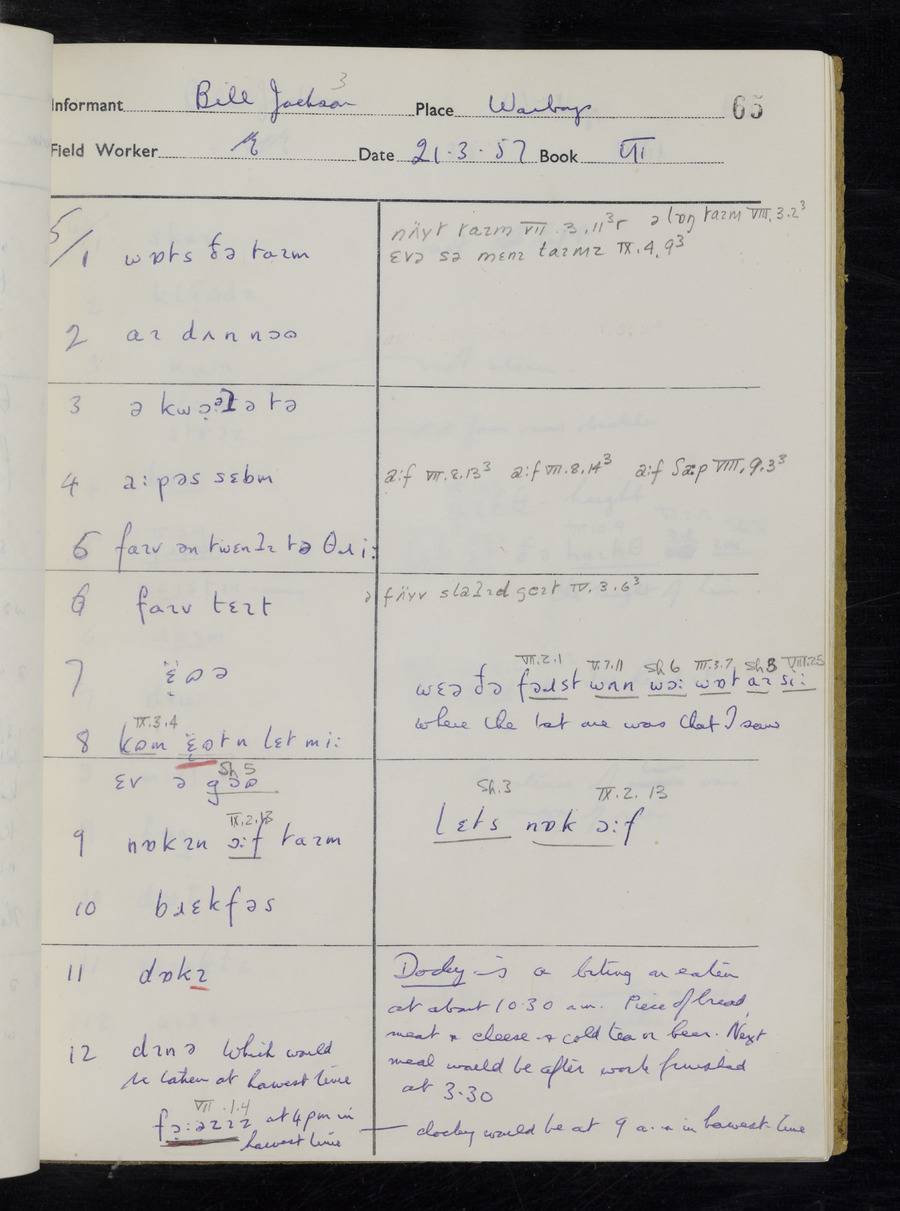 3
Informant Bill Jackson Place Warboys 65
Field Worker Date 21·3·57 Book VII
5/1 wɒts ðə taɪm
nʌ̈ɪt taɪm VII.3.11³ r ə lɒŋ taɪm VIII.3.2³
ɛvə sə mɛnɪ taɪmz IX.4.9³
2 aɪ dʌn nɔʊ
3 ə kwɔ:ʔə tə
4 a:pəs sɛbm
a:f VII.8.13³ a:f VII.8.14³ a:f ʃa:p VIII.9.3³
5 faɪv ən twɛnʔɪ tə θɹi:
6 faɪv tɛɪt
ə fʌ̈ɪv slaʔɪd gɛɪt IV.3.6³
7 ɛ̈ʊə
VII.2.1 V.7.11 Sh 6 III.3.7 Sh 8 VIII.25
wɛə ðə fəɹst wʌn wɔ: wɒt aɪ si:
where the last one was that I saw
IX.3.4
8 kʊm ɛ̈ʊt n lɛt mi:
Sh 5
ɛv ə gɔʊ
IX.2.13
9 nɒkɪn ɔ:f taɪm
Sh.3 IX.2.13
lɛts nɒk ɔ:f
10 bɹɛkfəs
11 dɒkɪ
Docky is a biting or eaten
at about 10·30 a.m. Piece of bread,
meat & cheese & cold tea or beer. Next
meal would be after work finished
at 3·30
12 dɪnə which would
be taken at harvest time
VII.1.4
fɔ:əzɪz at 4 pm in
harvest time
docky would be at 9 a.m in harvest-time